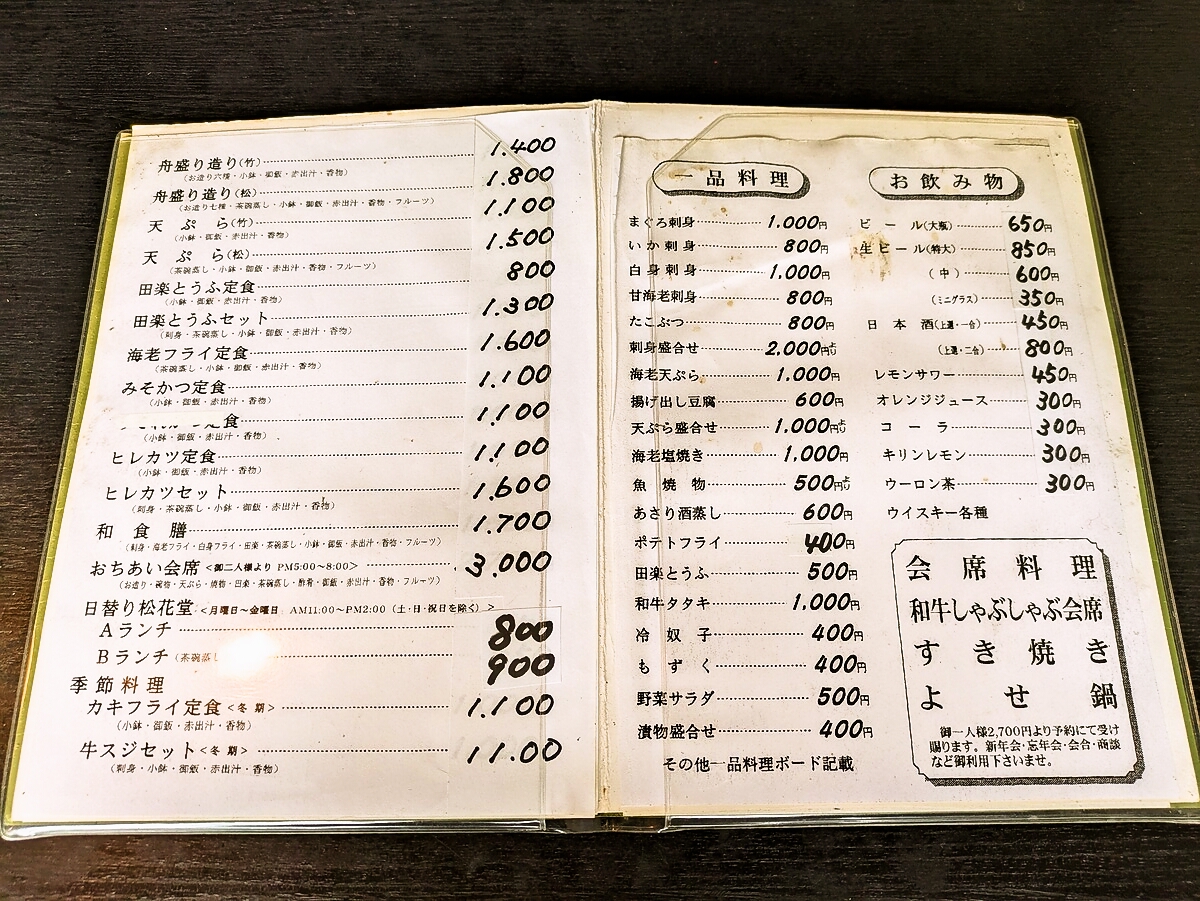 舟盛り造り(竹) 1.400
(お造り六種・小鉢・御飯・赤出汁・香物)
舟盛り造り(松) 1.800
(お造り七種・茶碗蒸し・小鉢・御飯・赤出汁・香物・フルーツ)
天ぷら(竹) 1.100
(小鉢・御飯・赤出汁・香物)
天ぷら(松) 1.500
(茶碗蒸し・小鉢・御飯・赤出汁・香物・フルーツ)
田楽とうふ定食 800
(小鉢・御飯・赤出汁・香物)
田楽とうふセット 1.300
(刺身・茶碗蒸し・小鉢・御飯・赤出汁・香物)
海老フライ定食 1.600
(茶碗蒸し・小鉢・御飯・赤出汁・香物)
みそかつ定食 1.100
(小鉢・御飯・赤出汁・香物)
定食 1.100
(小鉢・御飯・赤出汁・香物)
ヒレカツ定食 1.100
(小鉢・御飯・赤出汁・香物)
ヒレカツセット 1.600
(刺身・茶碗蒸し・小鉢・御飯・赤出汁・香物)
和食膳 1.700
(刺身・海老フライ・白身フライ・田楽・茶碗蒸し・小鉢・御飯・赤出汁・香物・フルーツ)
おちあい会席 <御二人様より PM5:00〜8:00> 3.000
(お造り・碗物・天ぷら・焼物・田楽・茶碗蒸し・酢肴・御飯・赤出汁・香物・フルーツ)
日替り松花堂 <月曜日〜金曜日 AM11:00〜PM2:00 (土・日・祝日を除く)>
Aランチ 800
Bランチ (茶碗蒸し 900
季節料理
カキフライ定食 <冬期> 1.100
(小鉢・御飯・赤出汁・香物)
牛スジセット <冬期> 11.00
(刺身・小鉢・御飯・赤出汁・香物)
一品料理
まぐろ刺身 1.000円
いか刺身 800円
白身刺身 1.000円
甘海老刺身 800円
たこぶつ 800円
刺身盛合せ 2.000円より
海老天ぷら 1.000円
揚げ出し豆腐 600円
天ぷら盛合せ 1.000円より
海老塩焼き 1.000円
魚焼物 500円より
あさり酒蒸し 600円
ポテトフライ 400円
田楽とうふ 500円
和牛タタキ 1.000円
冷奴子 400円
もずく 400円
野菜サラダ 500円
漬物盛合せ 400円
その他一品料理ボード記載
お飲み物
ビール(大瓶) 650円
生ビール(特大) 850円
(中) 600円
(ミニグラス) 350円
日本酒(上選・一合) 450円
(上選・二合) 800円
レモンサワー 450円
オレンジジュース 300円
コーラ 300円
キリンレモン 300円
ウーロン茶 300円
ウイスキー各種
会席料理
和牛しゃぶしゃぶ会席
すき焼き
よせ鍋
御一人様2,700円より予約にて受け
賜ります。新年会・忘年会・会合・商談
など御利用下さいませ。